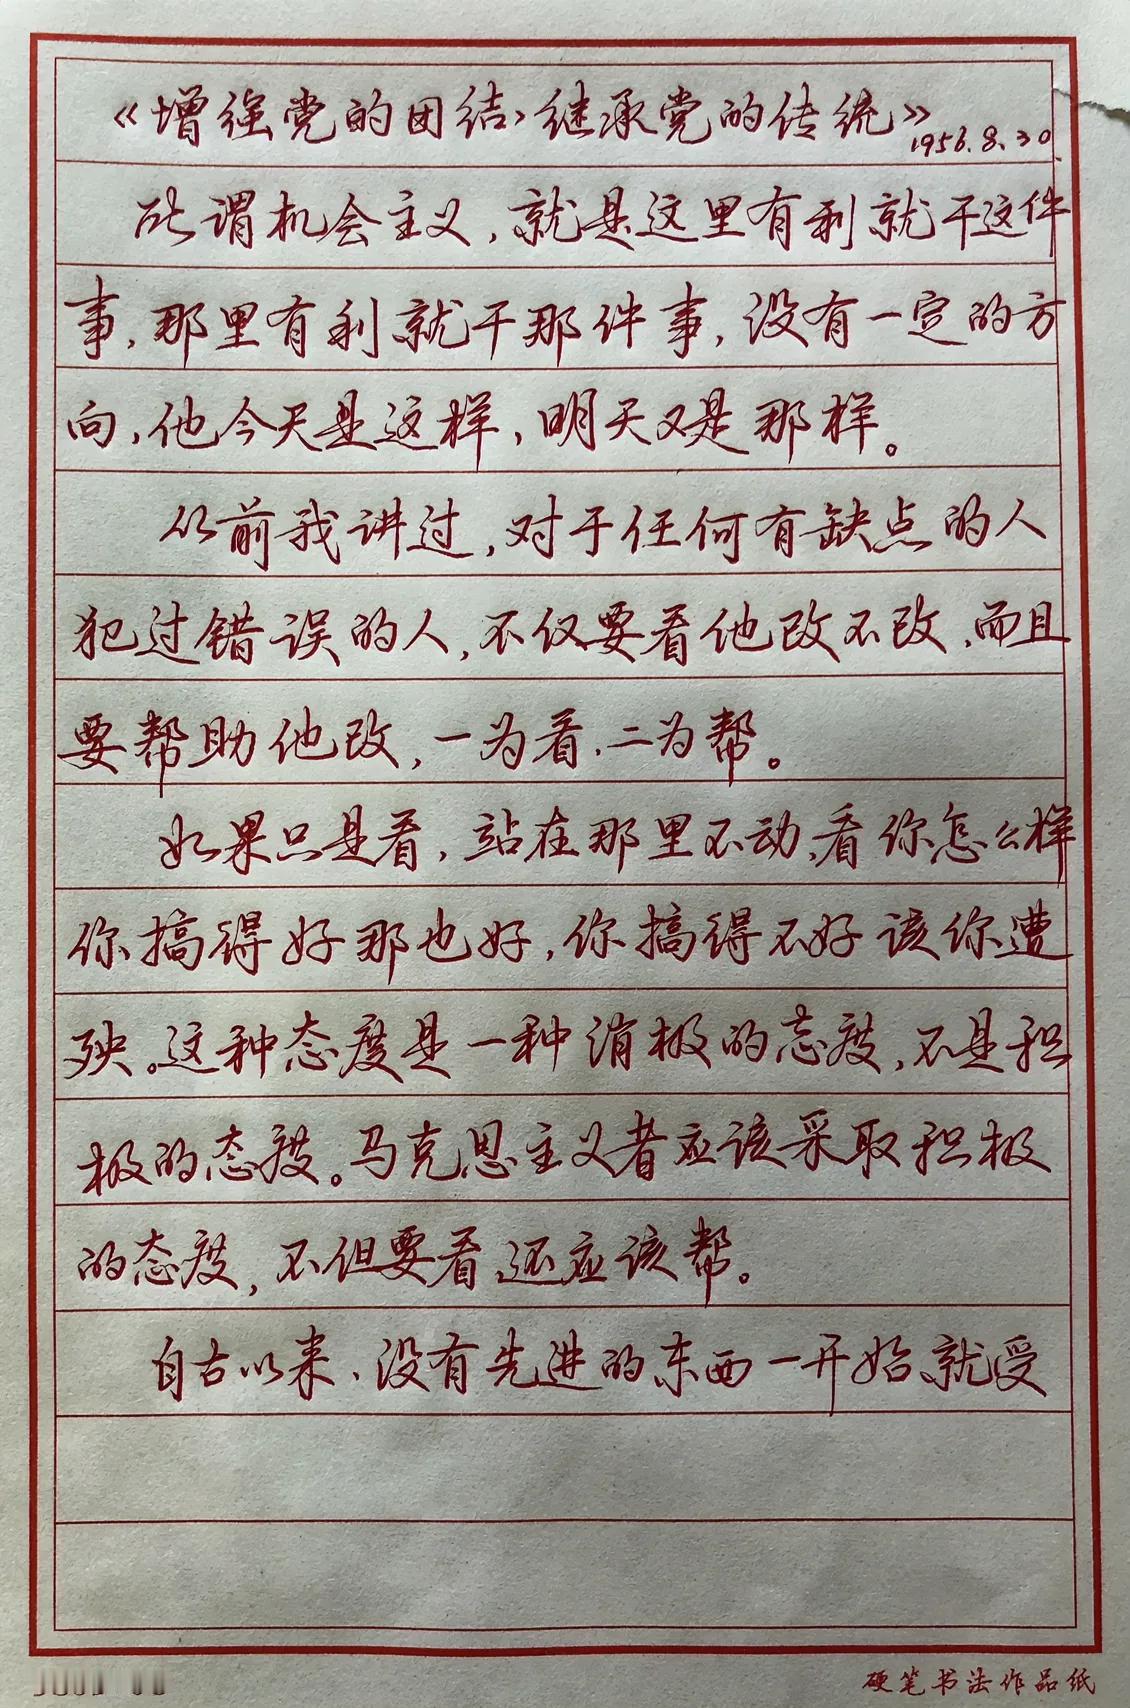 《增强党的团结、继承党的传统》
1956.8.30.
所谓机会主义，就是这里有利就干这件
事，那里有利就干那件事，没有一定的方
向，他今天是这样，明天又是那样。
以前我讲过，对于任何有缺点的人
犯过错误的人，不仅要看他改不改、而且
要帮助他改，一为看、二为帮。
如果只是看，站在那里不动、看你怎么样
你搞得好那也好，你搞得不好该你遭
殃。这种态度是一种消极的态度，不是积
极的态度。马克思主义者应该采取积极
的态度，不但要看、还应该帮。
自古以来、没有先进的东西一开始就受
硬笔书法作品纸